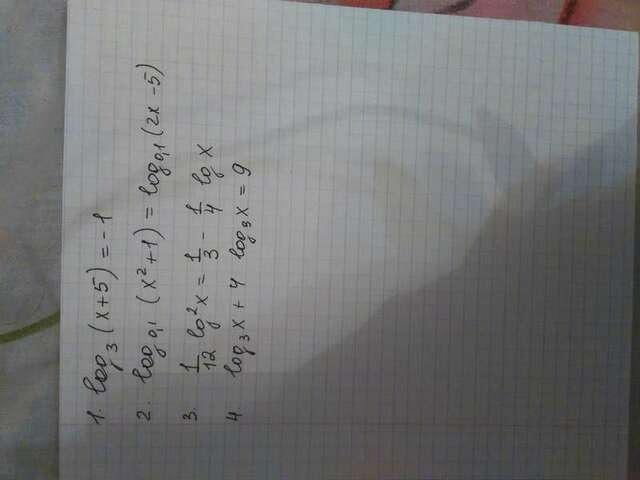 1. log₃(x+5) = -1
2. log₀,₁(x²+1) = log₀,₁(2x-5)
3. 1/12 lg²x = 1/3 - 1/4 lg x
4. log₃x + 4 log₃x = 9